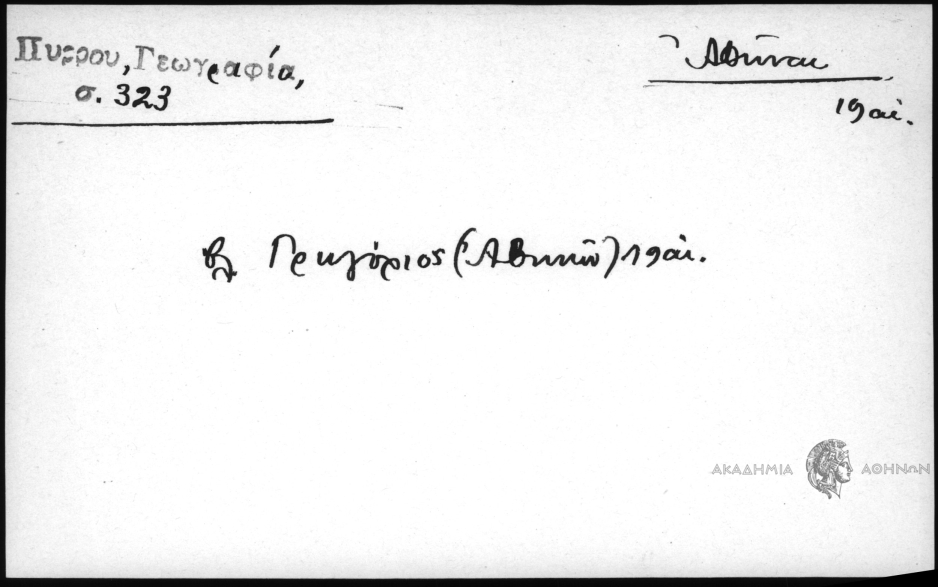 Πυρρου, Γεωγραφία,
σ. 323
Ἀθῆναι
19 αἰ.
βλ. Γρηγόριος (Ἀθηνῶν) 19 αἰ.
ΑΚΑΔΗΜΙΑ ΑΘΗΝΩΝ